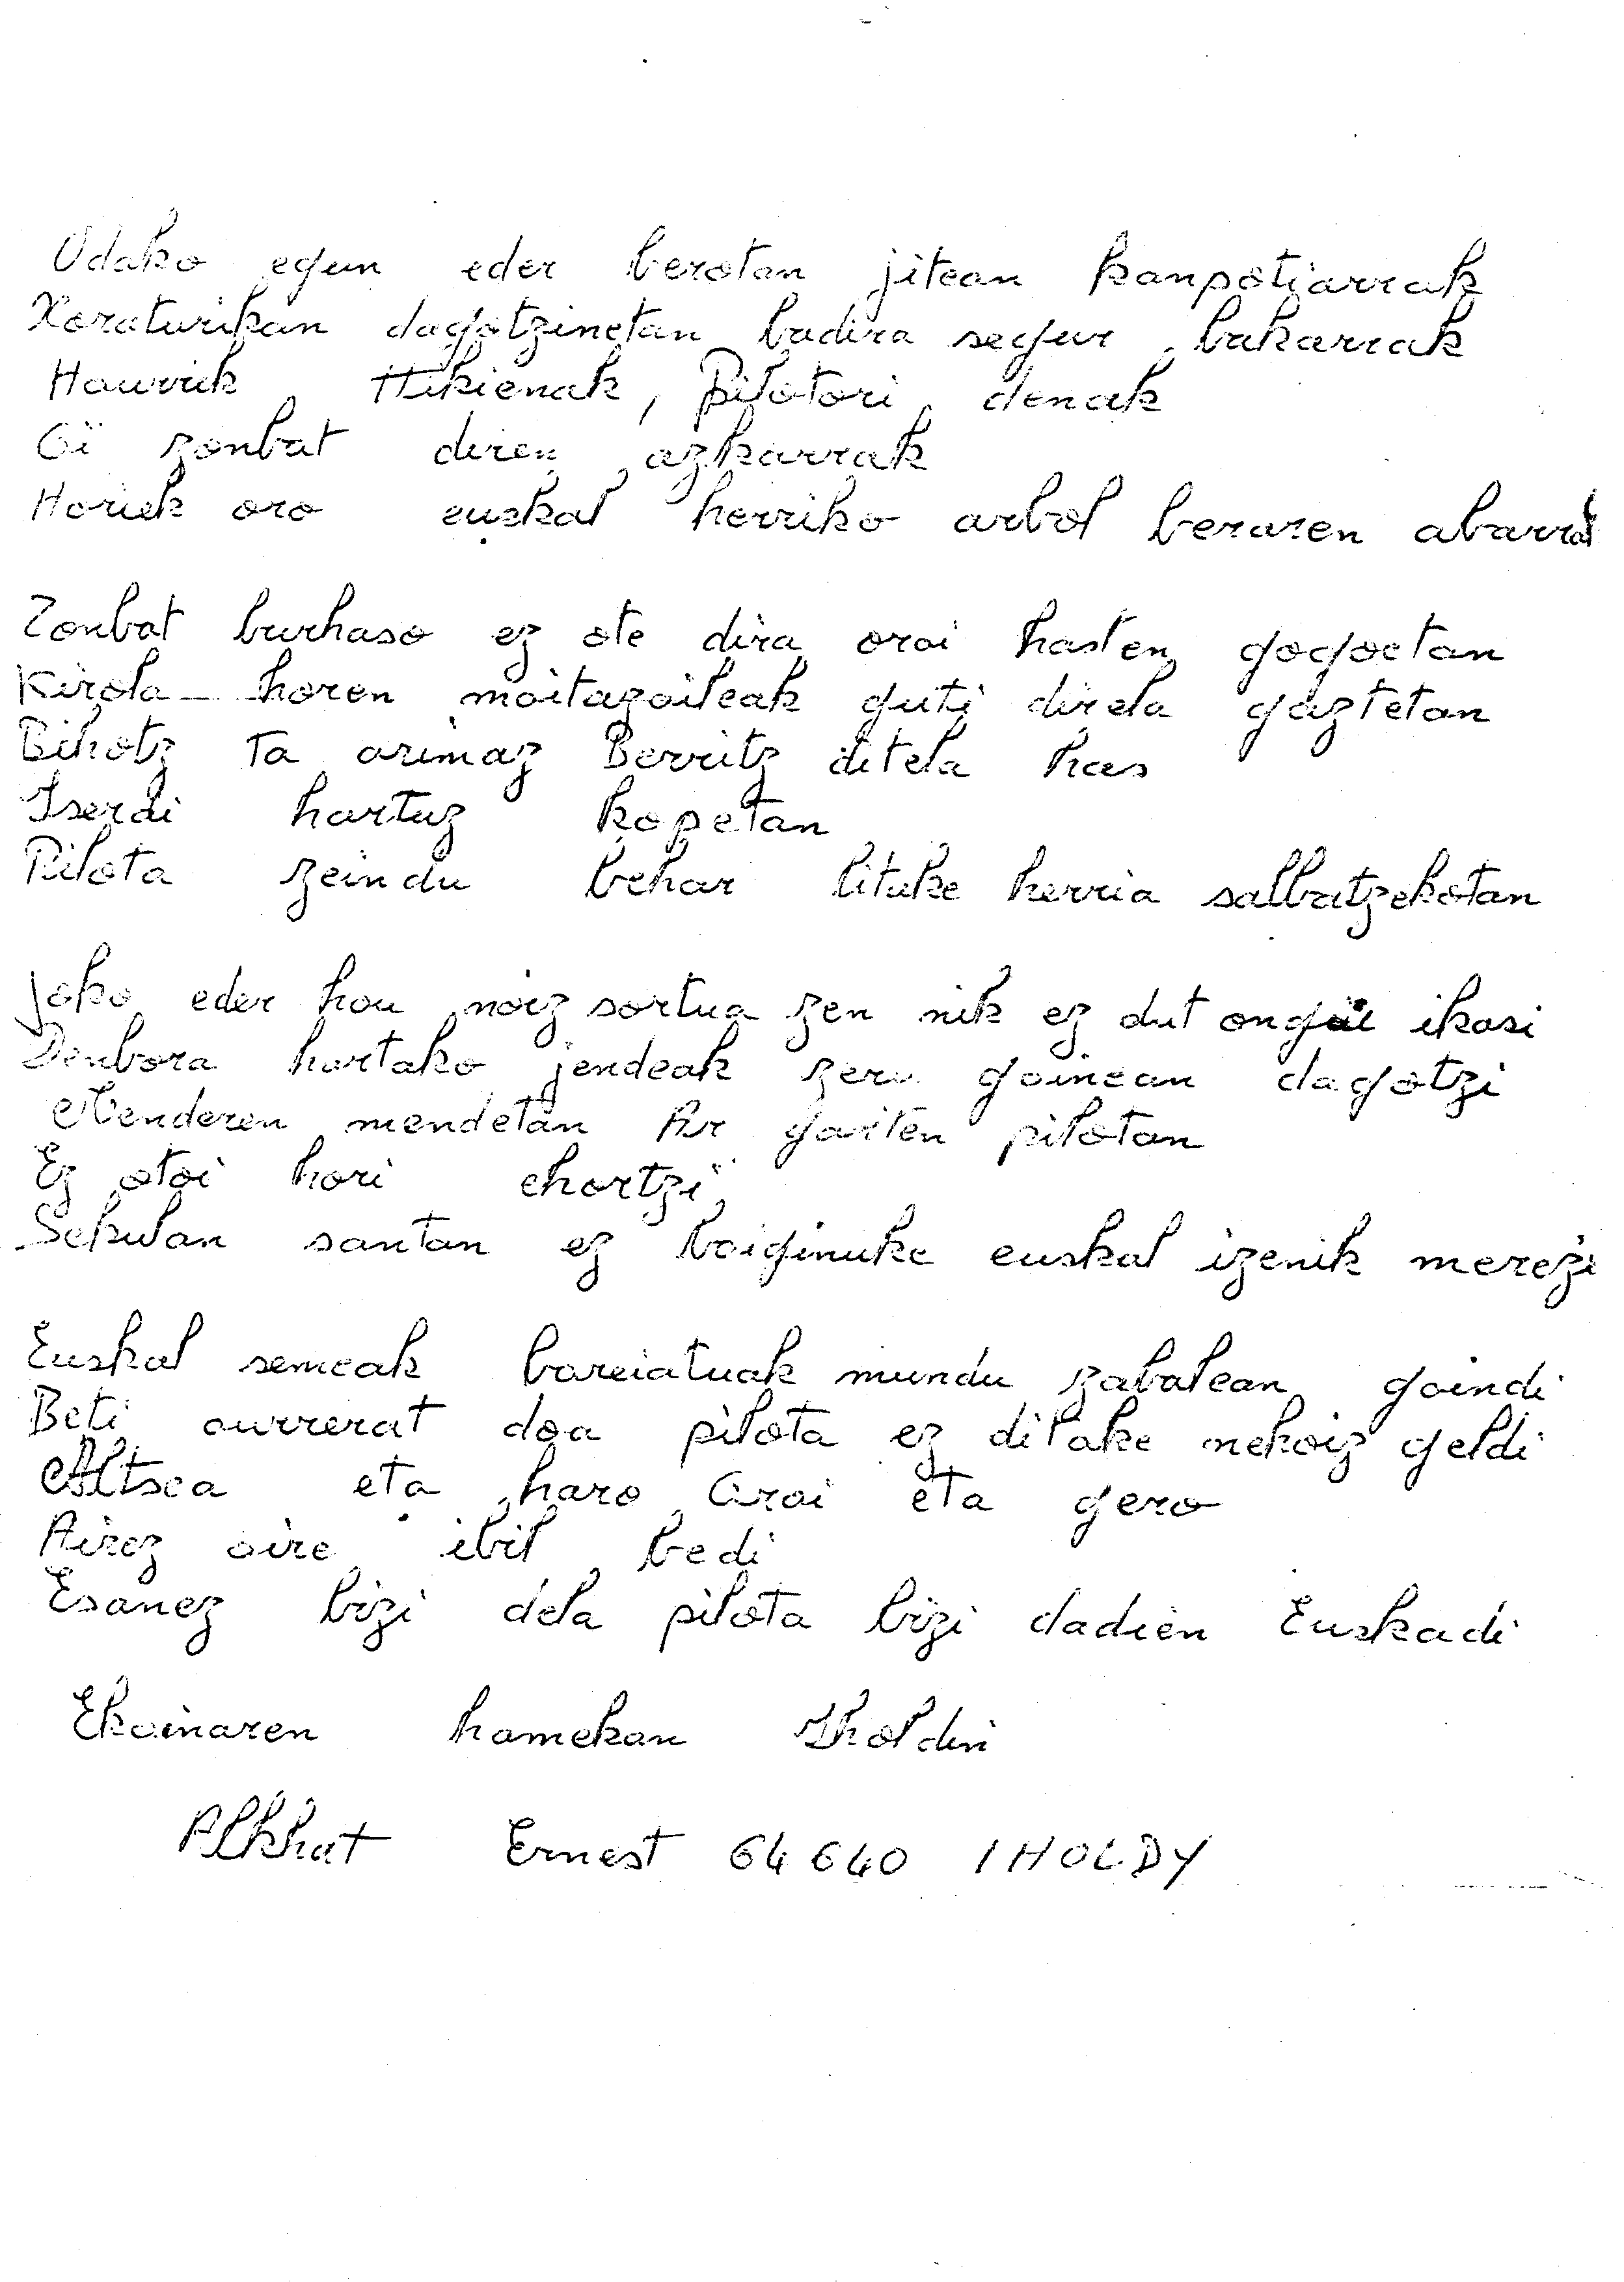 Udako egun eder berotan jitean kanpotiarrak
Xoraturikan dagotzinetan badira segur bakarrak
Haurrik ttikienak, Pilotari denak
Oi zonbat diren azkarrak
Horiek oro euskal herriko arbol beraren abarrak
Zonbat burhaso ez ote dira orai hasten gogoetan
Kirola horen maitazaileak guti direla gaztetan
Bihotz ta arimaz Berritz ditela has
Iserdi hartuz kopetan
Pilota zaindu behar lituke herria salbatzekotan
Joko eder hau noiz sortua zen nik ez dut ongi ikasi
Denbora hartako jendeak zeru gainean dagotzi
Menderen mendetan Ar gaiten pilotan
Ez otoi hori ehortzi
Sekulan santan ez baiginuke euskal izenik merezi
Euskal semeak bareiatuak mundu zabalean gaindi
Beti aurrerat doa pilota ez ditake nehoiz geldi
Altsea eta haro Orai eta gero
Airez aire ibil bedi
Esanez bizi dela pilota bizi dadien Euskadi
Ekainaren hamekan Iholdin
Alkhat Ernest 64640 IHOLDY